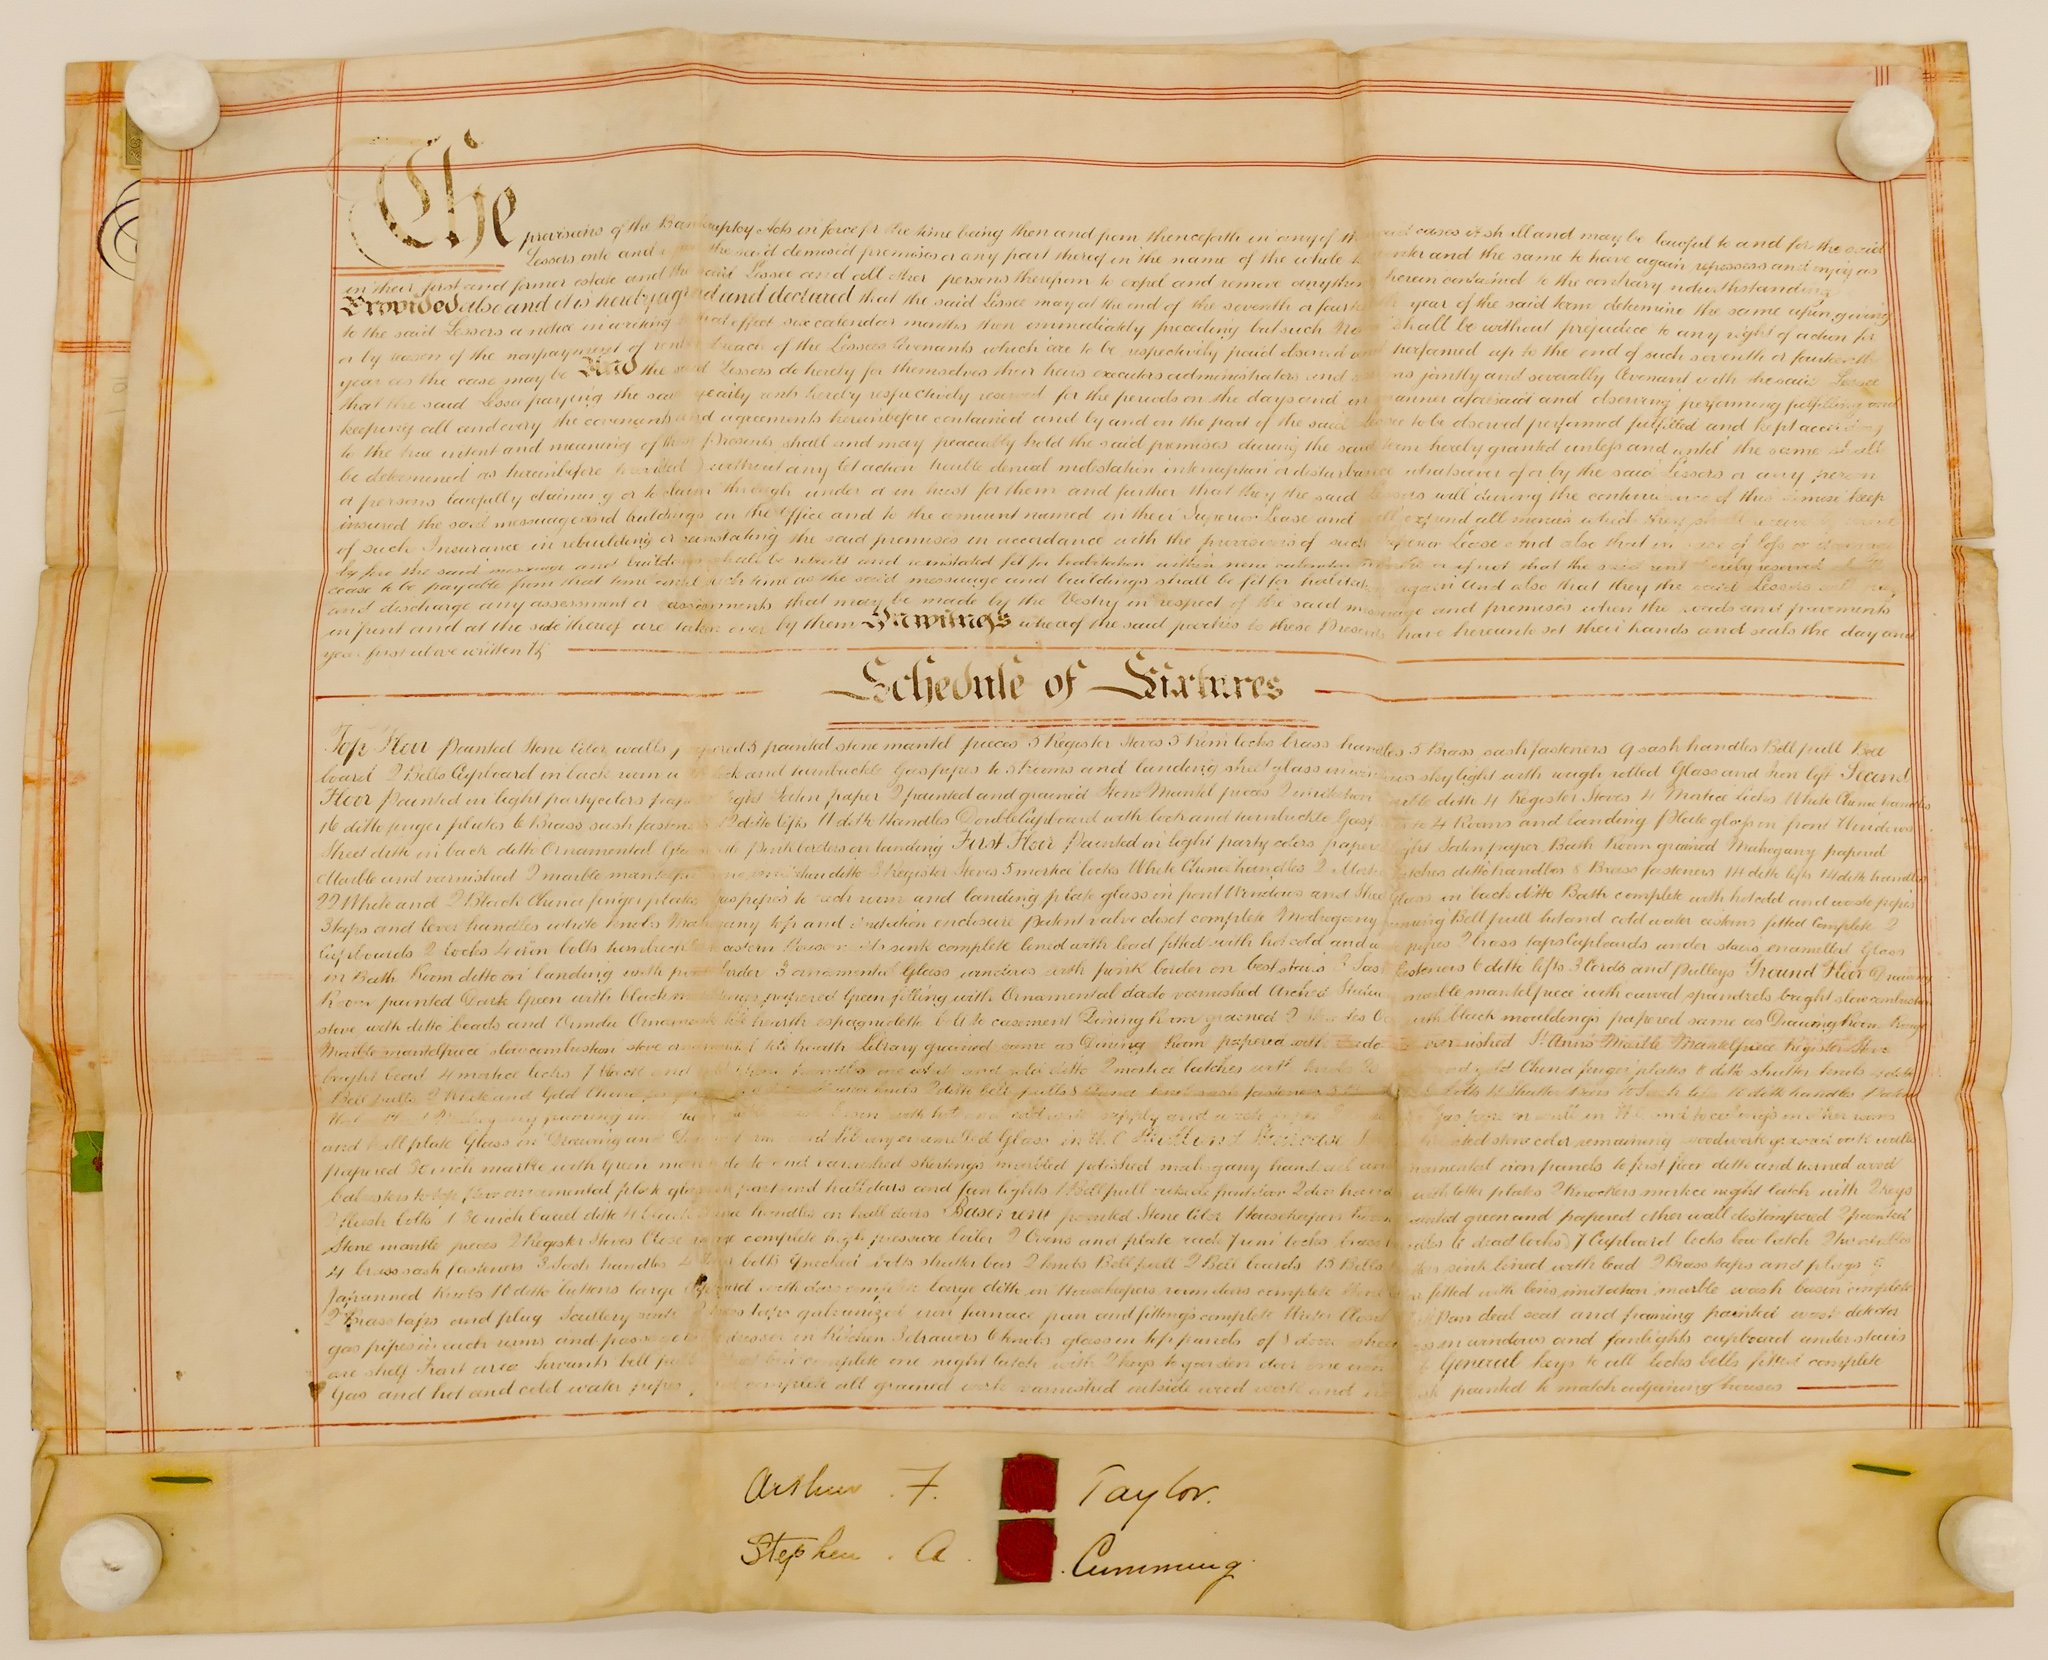 The provisions of the Bankruptcy Acts in force for the time being then and from thenceforth in any of the said cases it shall and may be lawful to and for the said
Lessors into and upon the said demised premises or any part thereof in the name of the whole to reenter and the same to have again repossess and enjoy as
in their first and former estate and the said Lessee and all other persons therefrom to expel and remove anything herein contained to the contrary notwithstanding
Provided also and it is hereby agreed and declared that the said Lessee may at the end of the seventh or fourteenth year of the said term determine the same upon giving
to the said Lessors a notice in writing to that effect six calendar months then immediately preceding but such Notice shall be without prejudice to any right of action for
or by reason of the nonpayment of rent or breach of the Lessees Covenants which are to be respectively paid observed and performed up to the end of such seventh or fourteenth
year as the case may be And the said Lessors do hereby for themselves their heirs executors administrators and assigns jointly and severally Covenant with the said Lessee
that the said Lessee paying the said yearly rents hereby respectively reserved for the periods on the days and in manner aforesaid and observing performing fulfilling and
keeping all and every the covenants and agreements hereinbefore contained and by and on the part of the said Lessee to be observed performed fulfilled and kept according
to the true intent and meaning of these Presents shall and may peaceably hold the said premises during the said term hereby granted unless and until the same shall
be determined as hereinbefore provided without any let action trouble denial molestation interruption or disturbance whatsoever of or by the said Lessors or any person
or persons lawfully claiming or to claim through under or in trust for them and further that they the said Lessors will during the continuance of this demise keep
insured the said messuage and buildings in the Office and to the amount named in their Superior Lease and will expend all monies which they shall receive by
of such Insurance in rebuilding or reinstating the said premises in accordance with the provisions of such Superior Lease And also that in case of loss or damage
by fire the said messuage and buildings shall be rebuilt and reinstated fit for habitation within nine calendar months or if not that the said rent hereby reserved shall
cease to be payable from that time until such time as the said messuage and buildings shall be fit for habitation again And also that they the said Lessors will pay
and discharge any assessment or assessments that may be made by the Vestry in respect of the said messuage and premises when the roads and pavements
in front and at the side thereof are taken over by them In witness whereof the said parties to these Presents have hereunto set their hands and seals the day and
year first above written
Schedule of Fixtures
Top Floor Painted Stone Color walls papered 5 painted stone mantel pieces 5 Register Stoves 5 Rim locks brass handles 5 Brass sash fasteners 9 sash handles Bell pull Bell
board 2 Bells Cupboard in back room with lock and turnbuckle Gas pipes to 5 Rooms and landing sheet glass in windows skylight with rough rolled Glass and Iron lift Second
Floor Painted in light party colors papered light Satin paper 2 painted and grained Stone Mantel pieces 2 imitation marble ditto 4 Register Stoves 4 Mortice Locks White China handles
16 ditto finger plates 6 Brass sash fasteners 12 ditto lifts 11 ditto Handles Double Cupboard with lock and turnbuckle Gas pipes to 4 Rooms and landing Plate glass in front Windows
Sheet ditto in back ditto Ornamental Glass with Pink borders on landing First Floor Painted in light party colors papered light Satin paper Bath Room grained Mahogany papered
Marble and varnished 2 marble mantelpieces one imitation ditto 3 Register Stoves 5 mortice locks White China handles 2 Mortice latches ditto handles 8 Brass fasteners 14 ditto lifts 14 ditto handles
22 White and 2 Black China finger plates Gas pipes to each room and landing plate glass in front Windows and Sheet Glass in back ditto Bath complete with hot cold and waste pipes
3 taps and lever handles white knobs Mahogany top and imitation enclosure Patent valve closet complete Mahogany framing Bell pull hot and cold water cistern fitted Complete 2
Cupboards 2 locks 4 iron bolts turnbuckle sink complete lined with lead fitted with hot cold and waste pipes 2 brass taps Cupboards under stairs enamelled Glass
in Bath Room ditto on landing with pink border 3 ornamental Glass windows with pink border on best stairs 3 Sash fasteners 6 ditto lifts 3 Cords and Pulleys Ground Floor Drawing
Room painted Dark Green with black mouldings papered Green filling with Ornamental dado varnished Arched Statuary marble mantelpiece with carved spandrels bright slow combustion
stove with ditto beads and Ormolu Ornaments tile hearth espagniolette bolt to casement Dining Room grained with black mouldings papered same as Drawing Room Rouge
Marble mantelpiece slow combustion stove tile hearth Library grained same as Dining Room papered with Dado varnished St Anns Marble Mantelpiece Register Stove
bright bead 4 mortice locks 2 mortice latches with knobs Gold China finger plates 6 ditto shutter knobs
Bell pulls 2 White and Gold China 2 ditto bell pulls brass sash fasteners bolts 4 Shutter Bars 10 Sash lifts 10 ditto handles
Mahogany framing with hot and cold water supply and waste pipes Gas pipe in wall in W.C. and to ceilings in other rooms
and hall plate Glass in Drawing and Dining Room and Library enamelled Glass in W.C. Hall and Staircase painted stone color remaining woodwork grained oak walls
papered 30 inch marble with green dado and varnished skirtings marbled polished mahogany handrail and ornamental iron panels to first floor ditto and turned wood
balusters to top floor ornamental plate glass in front and hall doors and fan lights 1 Bell pull outside front door 2 door with letter plates 2 Knockers mortice night latch with 2 keys
2 flush bolts 1 30 inch barrel ditto 4 handles on hall doors Basement painted Stone Color Housekeepers Room painted green and papered other wall distempered 2 painted
Stone mantle pieces 2 Register Stoves Close range complete high pressure boiler 2 Ovens and plate rack 7 rim locks brass handles 6 dead locks 7 Cupboard locks bow latch
4 brass sash fasteners 3 Sash handles bolts 9 necked bolts shutter bar 2 knobs Bell pull 2 Bell boards 15 Bells sink lined with lead 2 Brass taps and plugs 6
Japanned Knobs 11 ditto buttons large Cupboard with door complete large ditto in Housekeepers room doors complete fitted with bins imitation marble wash basin complete
2 Brass taps and plug Scullery sink 2 brass taps galvanized iron furnace pan and fittings complete Water Closet Pan deal seat and framing painted waste detector
gas pipes in each room and passage dresser in Kitchen 3 drawers 6 knobs glass in top panels of 1 door sheet glass in windows and fanlights cupboard under stairs
one shelf Front area Servants bell pull dust bin complete one night latch with 2 keys to garden door one iron General keys to all locks bells fitted complete
Gas and hot and cold water pipes complete all grained work varnished outside wood work and painted to match adjoining houses
Arthur . F. Taylor.
Stephen . A . Cumming.